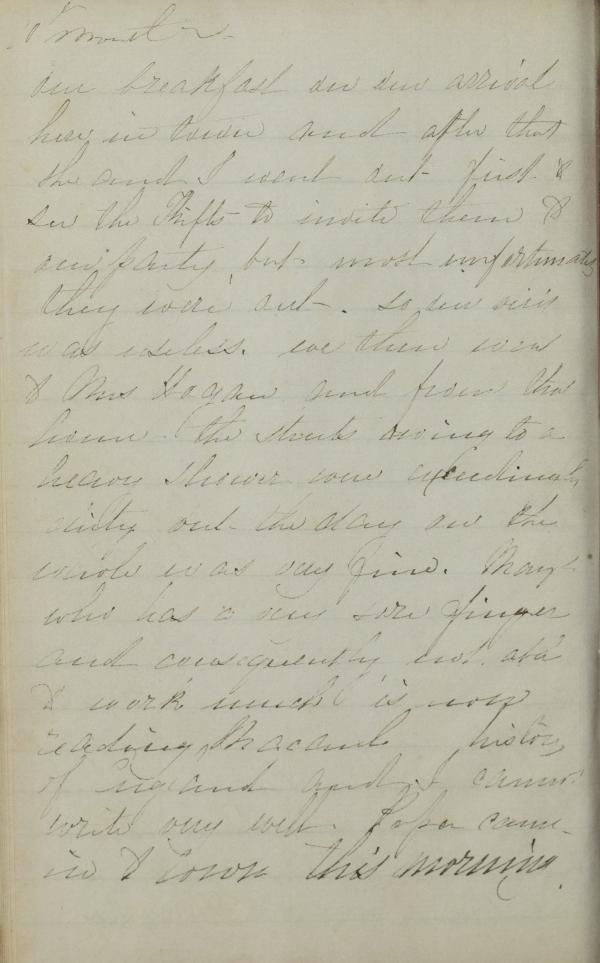 our breakfast on our arrival
here in town and after that
she and I went out first to
see the Tifts to invite them to
our party but most unfortunately
they were out. so our visit
was useless. we then went
to Mrs Hogan and from that
home. The streets owing to a
heavy shower were exceedingly
dirty but the day on the
whole was very fine. Mary
who has a very sore finger
and consequently not able
to work much is now
reading Macaul history
of England and I cannot
write very well. Papa came
in to town this morning.